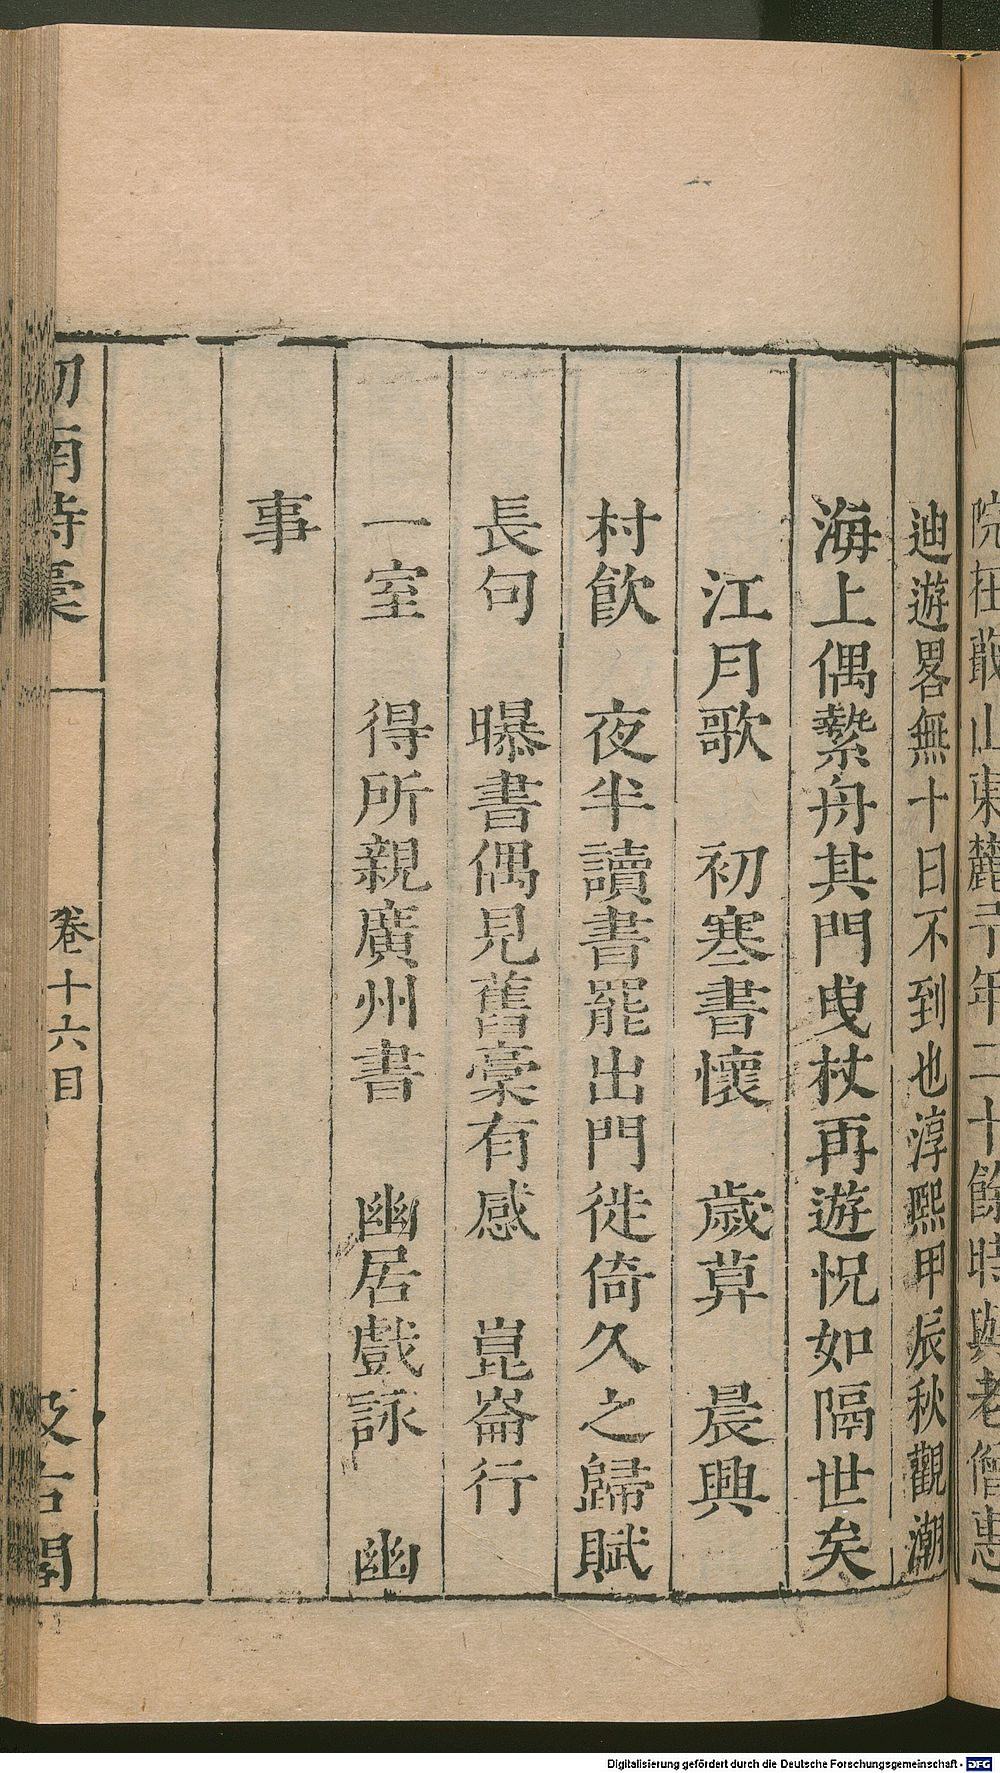 院在敢山東麓予年二十餘時與老僧惠
迪遊畧無十日不到也淳熙甲辰秋觀潮
海上偶縶舟其門曳杖再遊怳如隔世矣
江月歌　初寒書懷　歲暮　晨興
村飲　夜半讀書罷出門徙倚久之歸賦
長句　曝書偶見舊稾有感　崑崙行
一室　得所親廣州書　幽居戲詠　幽
事
劒南詩稾
卷十六目
汲古閣
Digitalisierung gefördert durch die Deutsche Forschungsgemeinschaft - DFG